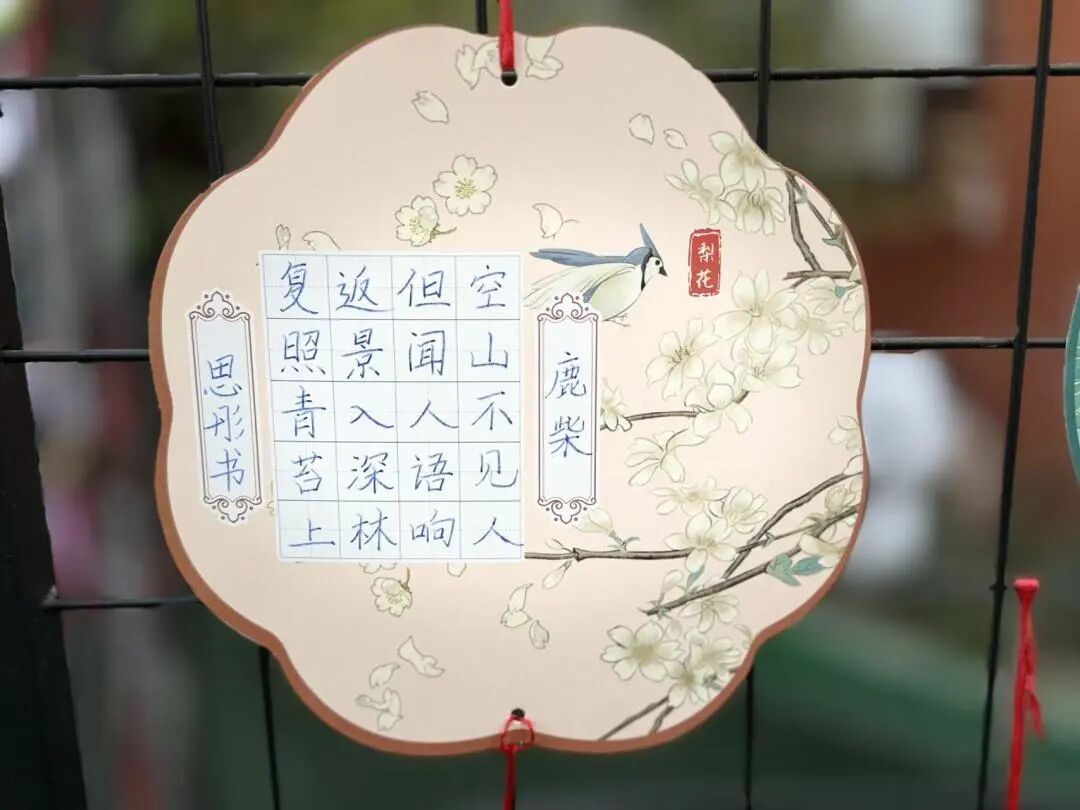 梨花
鹿柴
空山不见人
但闻人语响
返景入深林
复照青苔上
思彤书